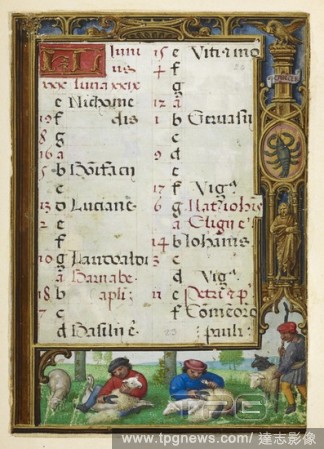 KL Iuni
us
xxx luna xxix
e Nichome
19 f dis
8 g
16 a
5 b Bonifacii
c
13 d Luciane
2 e
f
10 g
a Barnabe
18 b apli:
7 c
d Basilii
15 e Viti
4 f
g
12 a
1 b Gervasii
c
9 d
e
17 f Vig
6 g
a Eligii
14 b Iohanis
3 c
d Vig
11 e Petri
f
pauli:
CANCER
TPG
www.tpgnews.com / 達志影像